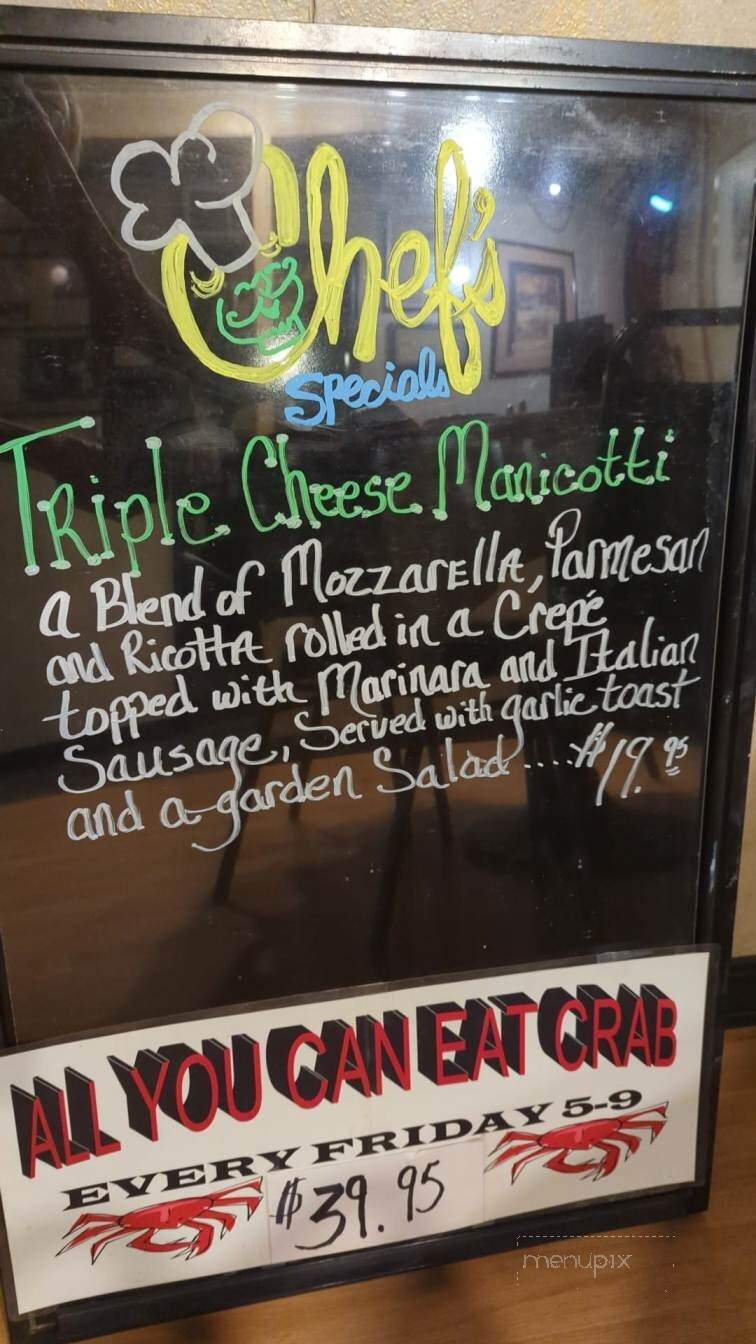 Chef's
Specials
Triple Cheese Manicotti
a Blend of Mozzarella, Parmesan
and Ricotta rolled in a Crepé
topped with Marinara and Italian
Sausage, Served with garlic toast
and a garden Salad .... $19.95
ALL YOU CAN EAT CRAB
EVERY FRIDAY 5-9
$39.95
menupix